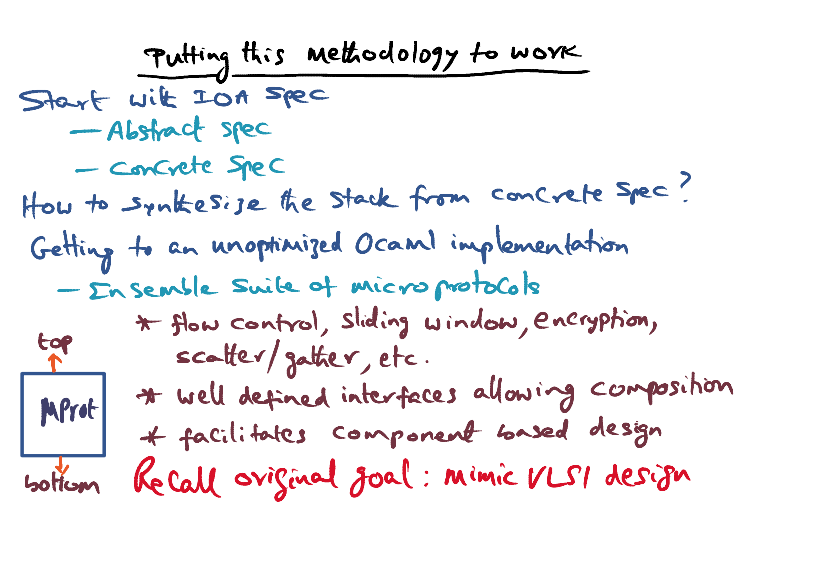 Putting this methodology to work
Start with IOA spec
— Abstract spec
— Concrete spec
How to synthesize the stack from concrete spec?
Getting to an unoptimized Ocaml implementation
— Ensemble suite of microprotocols
* flow control, sliding window, encryption,
scatter/gather, etc.
top
* well defined interfaces allowing composition
MProt
* facilitates component based design
Recall original goal: mimic VLSI design
bottom